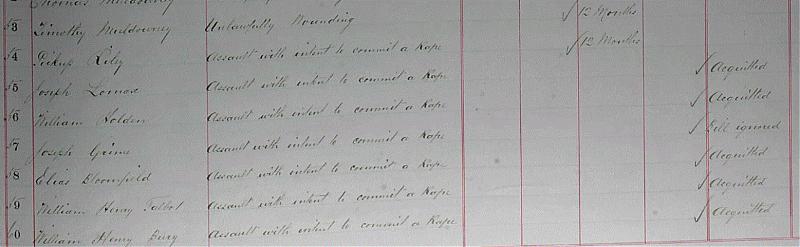 Thomas Muldowney
53 Timothy Muldowney Unlawfully Wounding / 12 Months
54 Pickup Riley Assault with intent to commit a Rape / 12 Months
55 Joseph Lomax Assault with intent to commit a Rape / Acquitted
56 William Holden Assault with intent to commit a Rape / Acquitted
57 Joseph Grime Assault with intent to commit a Rape / Bill ignored
58 Elias Bloomfield Assault with intent to commit a Rape / Acquitted
59 William Henry Talbot Assault with intent to commit a Rape / Acquitted
60 William Henry Bury Assault with intent to commit a Rape / Acquitted